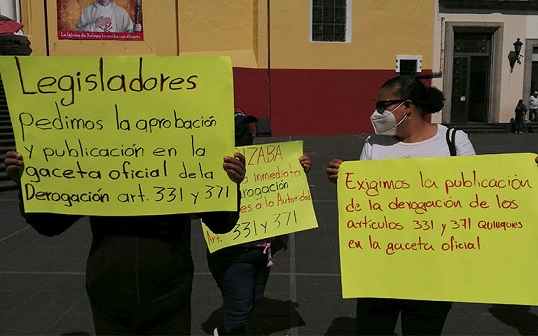 La Iglesia de Xalapa lo recibe con alegría
Legisladores
Pedimos la aprobación
y publicación en la
gaceta oficial de la
Derogación art. 331 y 371
ZABA
inmediata
rogación
es a la Autoridad
Art. 331 y 371
Exigimos la publicación
de la derogación de los
artículos 331 y 371 Quinquies
en la gaceta oficial